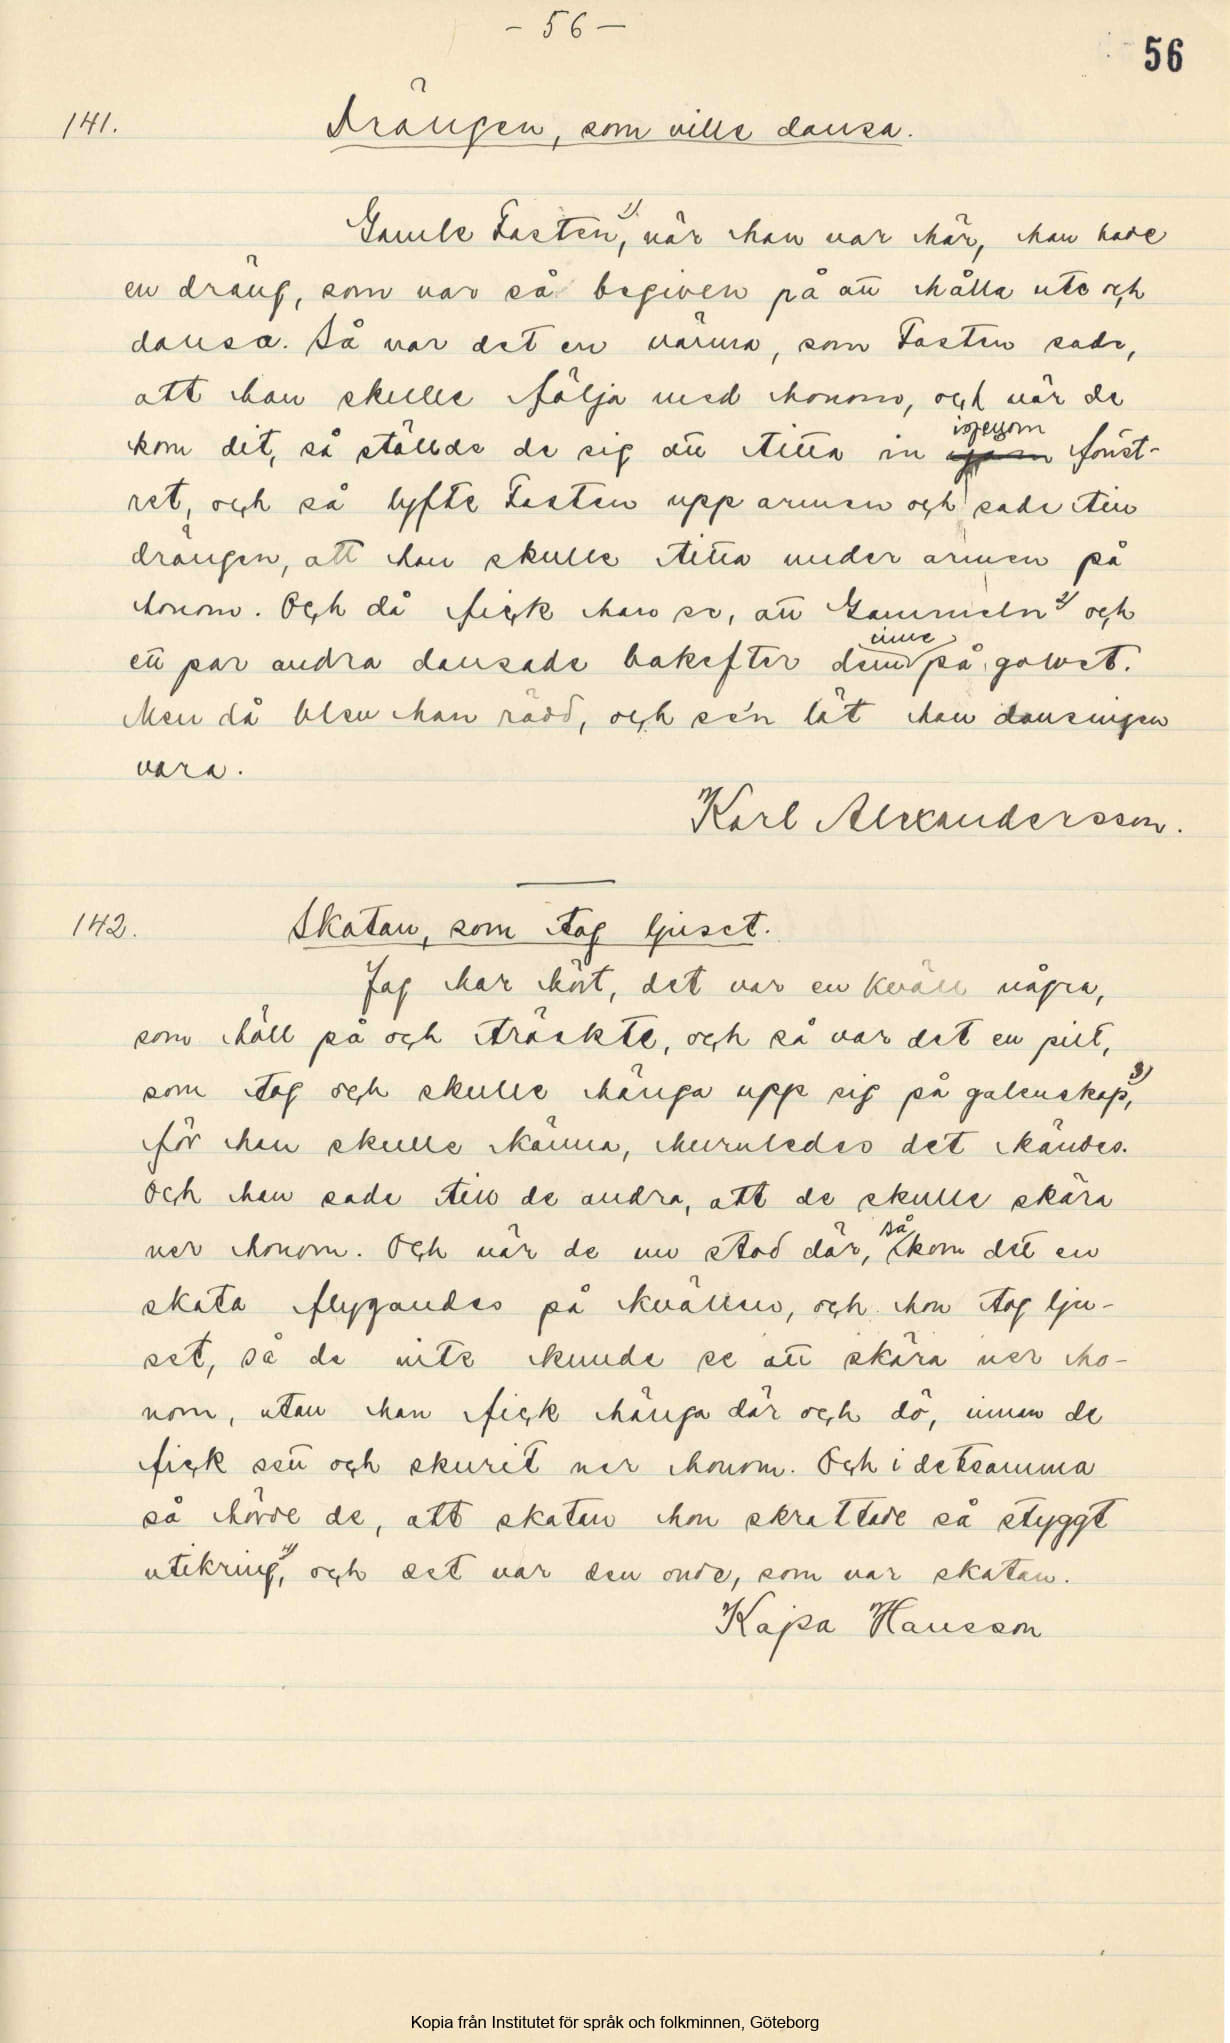 - 56 -
56
141. Drängen, som ville dansa.
Gamle Fasten,¹⁾ när han var här, han hade
en dräng, som var så begiven på att hålla ute och
dansa. Så var det en värma, som Fasten sade,
att han skulle följa med honom, och när de
kom dit, så ställde de sig att titta in igenom fönst-
ret, och så lyfte Fasten upp armen och sade till
drängen, att han skulle titta under armen på
honom. Och då fick han se, att Gammeln²⁾ och
ett par andra dansade bakefter dem inne på golvet.
Men då blev han rädd, och se'n lät han dansingen
vara.
Karl Alexandersson.
142. Skatan, som tog ljuset.
Jag har hört, det var en kväll några,
som höll på och träskte, och så var det en pilt,
som tog och skulle hänga upp sig på galenskap,³⁾
för han skulle känna, huruledes det kändes.
Och han sade till de andra, att de skulle skära
ner honom. Och när de nu stod där, så kom dit en
skata flygandes på kvällen, och hon tog lju-
set, så de inte kunde se att skära ner ho-
nom, utan han fick hänga där och dö, innan de
fick sett och skurit ner honom. Och i detsamma
så hörde de, att skatan hon skrattade så styggt
utikring,⁴⁾ och det var den onde, som var skatan.
Kajsa Hansson
Kopia från Institutet för språk och folkminnen, Göteborg